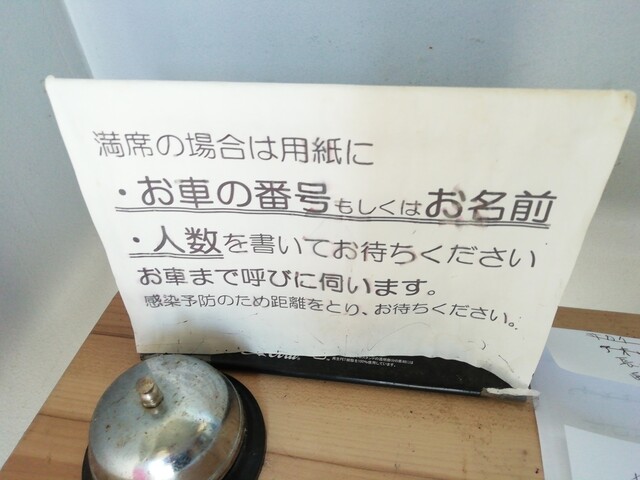 満席の場合は用紙に
・お車の番号もしくはお名前
・人数を書いてお待ちください
お車まで呼びに伺います。
感染予防のため距離をとり、お待ちください。